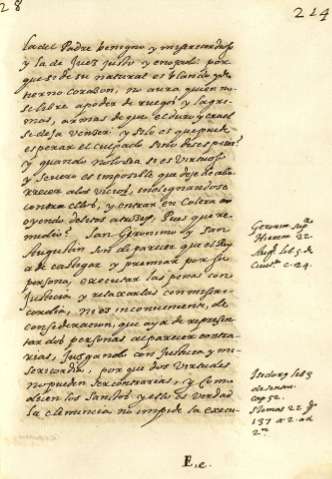 28
214
la del Padre benigno y misericordioso
y la de Juez Justo y enojado por
que si de su natural es blando y de
tierno corazon, no aura quien no
se libre a poder de ruegos y lagri
mas, armas de que el duro y cruel
se deja vencer y solo es que puede
esperar el culpado sino desesperar?
y quando no lo sea si es virtuoso
y severo es imposible que deje de abo
rrecer a los vicios, indignandose
contra ellos, y entrar en colera
oyendo delitos atroses. Pues que re
medio? San Geronimo y San
Augustin son de parecer que el Rey
a de castigar y premiar por su
persona, executar las penas con
Justicia y relaxarlas con mise
ricordia, No es inconueniente, de
consideracion, que aya de represen
tar dos personas al parecer contra
rias, Juzgando con Justicia y mi
sericordia, por que dos virtudes
no pueden ser contrarias, y como
dicen los Santos y ello es verdad
la clemencia no impide la execu
Geronim sup
Hierem 22.
Aug. lib 5 de
Ciuit. c. 24.
Isidoro lib 3
cap 52.
S tomas 22 q
157 a 2. ad
2m
E.e.